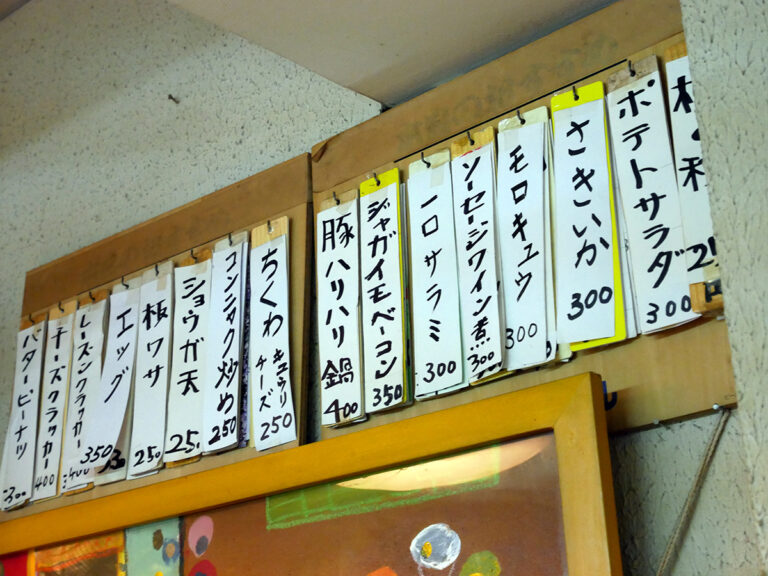 ポテトサラダ 300
さきいか 300
モロキュウ 300
ソーセージワイン煮 300
一口サラミ 300
ジャガイモベーコン 350
豚ハリハリ鍋 400
ちくわ キュウリ チーズ 250
コンニャク炒め 250
ショウガ天 25
板ワサ 250
エッグ
レーズンクラッカー 350
チーズクラッカー 400
バターピーナツ 300